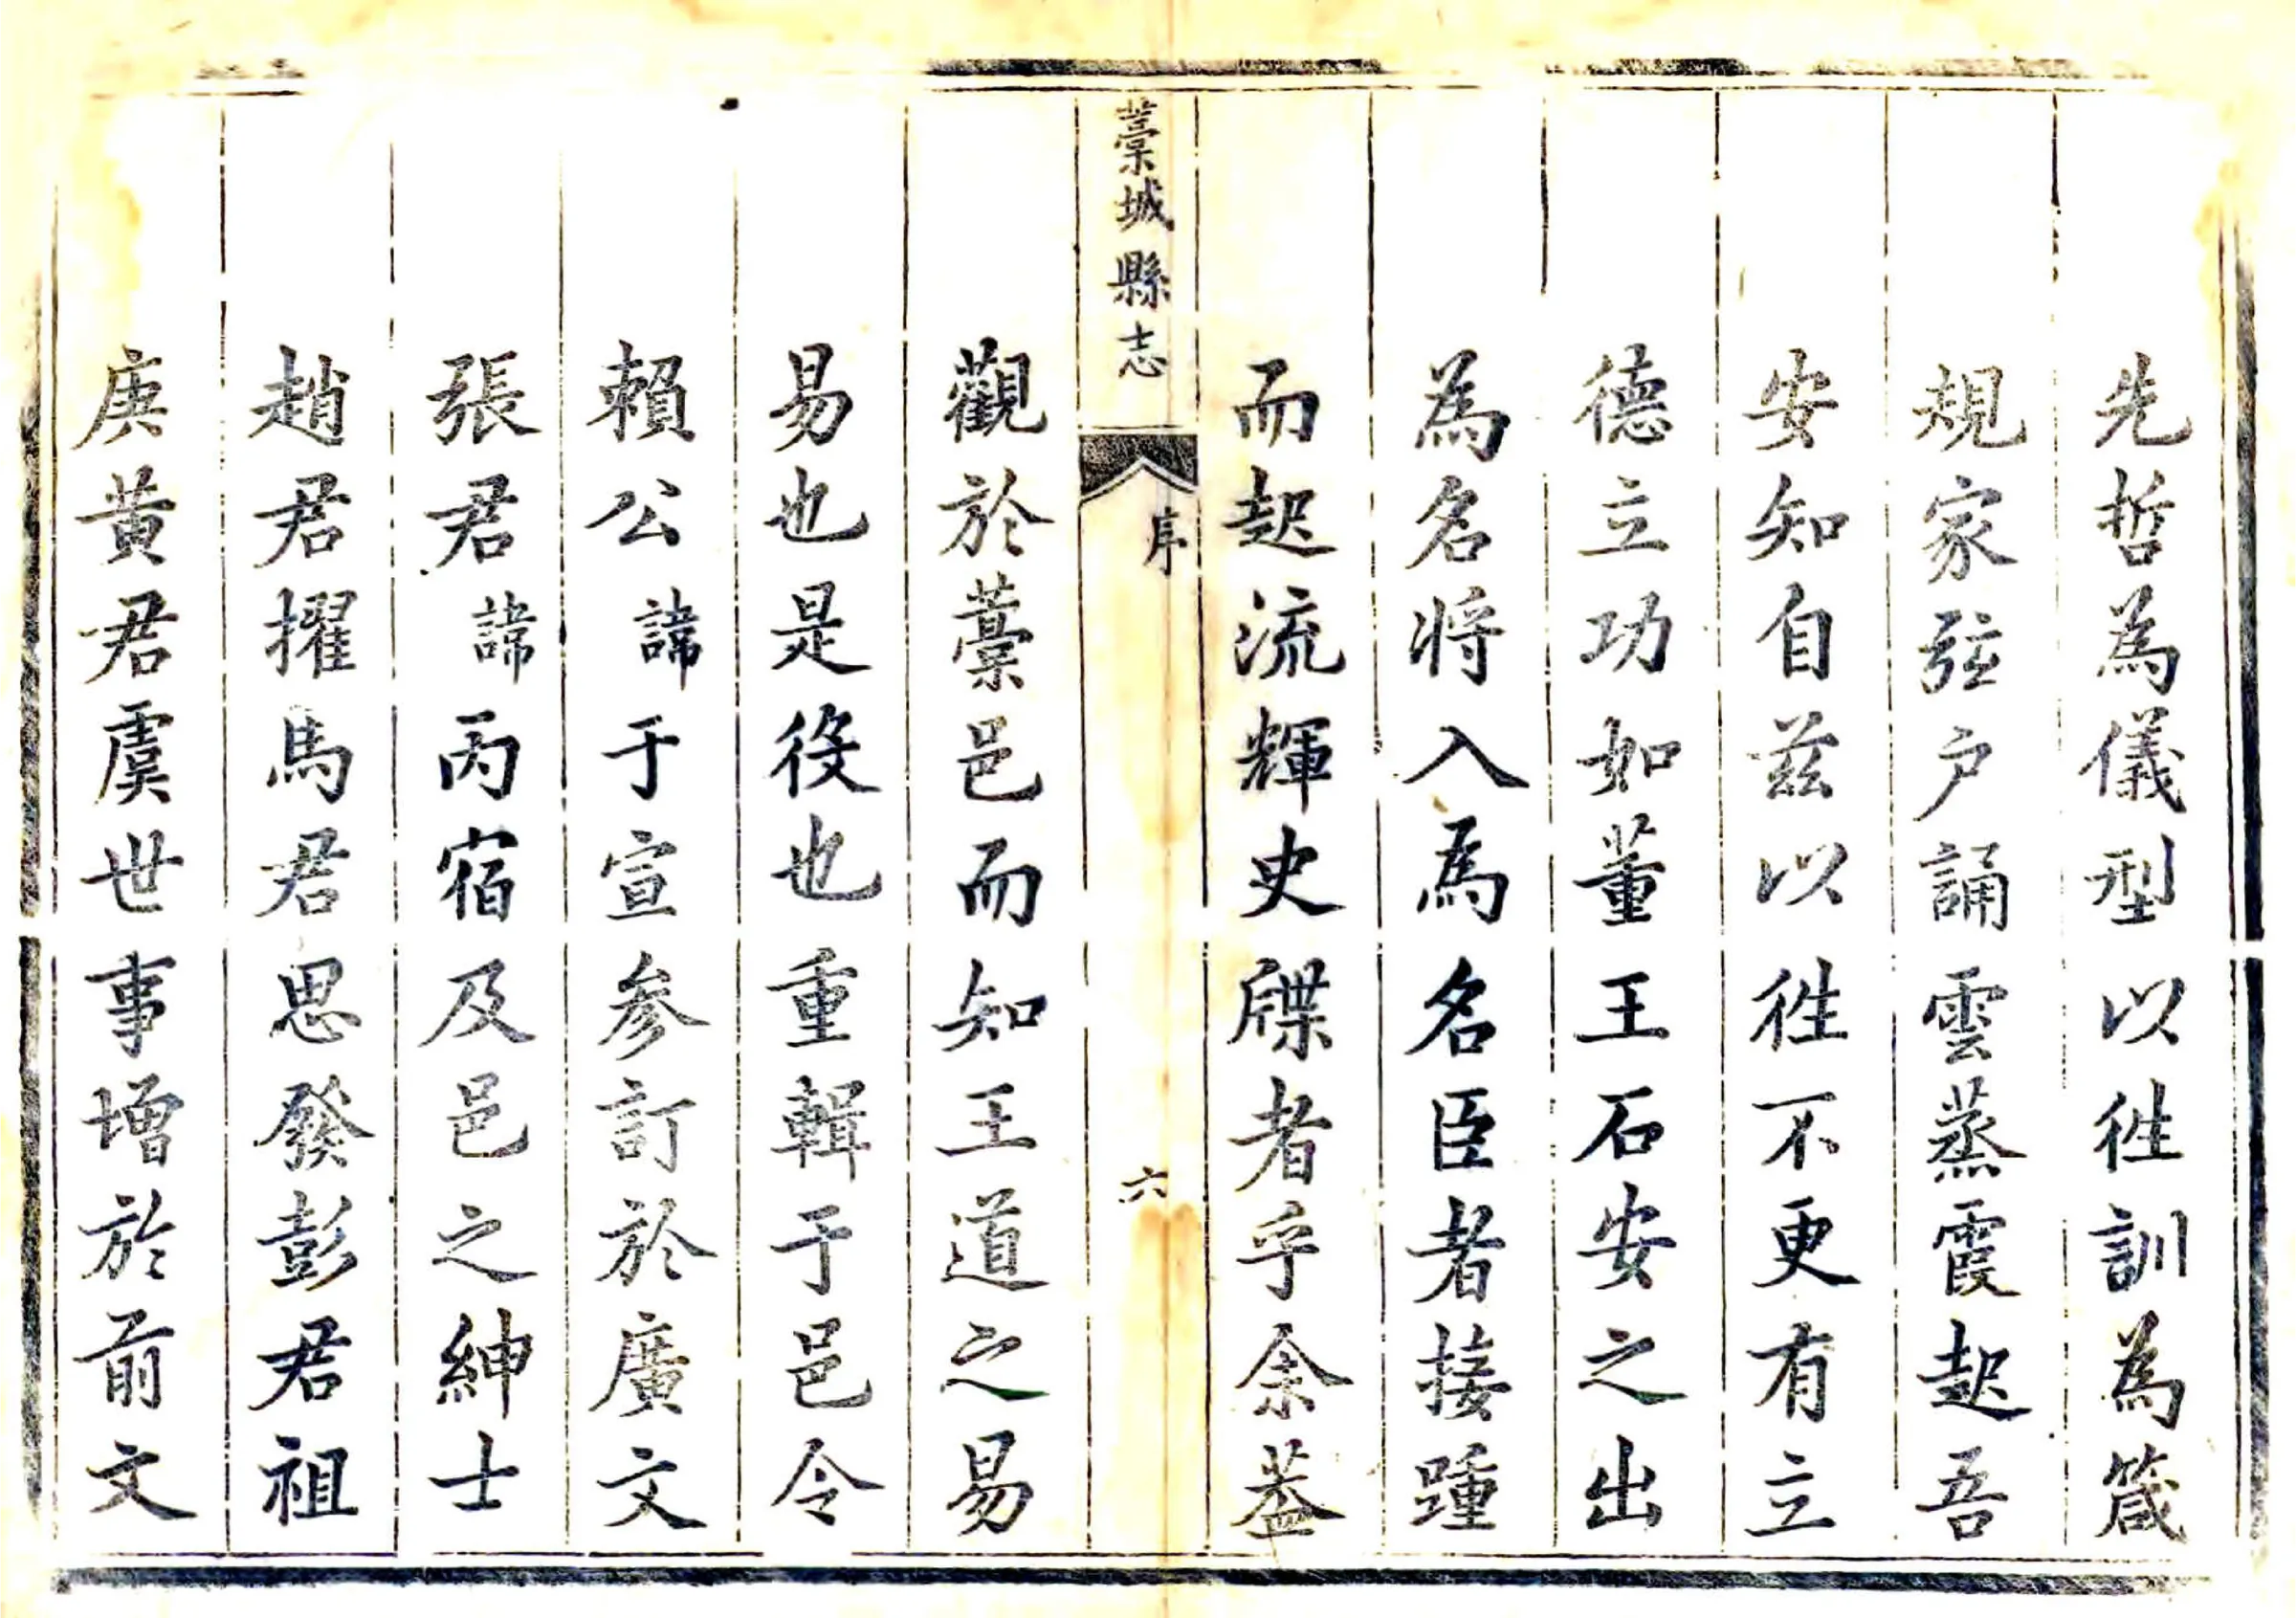 先哲為儀型以徃訓為箴
規家弦户誦雲蒸霞起吾
安知自兹以徃不更有立
德立功如董王石安之出
為名将入為名臣者接踵
而起流輝史牒者乎余葢
藁城縣志
序
六
觀於藁邑而知王道之易
易也是役也重輯于邑令
賴公諱于宣参訂於廣文
張君諱丙宿及邑之紳士
趙君擢馬君思發彭君祖
庚黄君虞世事增於前文